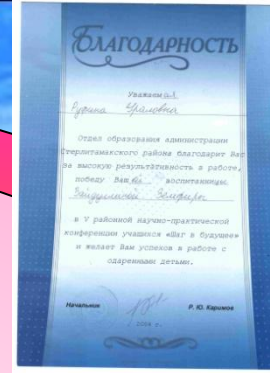 БЛАГОДАРНОСТЬ
Уважаемая
Ураловна
Отдел образования администрации
Стерлитамакского района благодарит Вас
за высокую результативность в работе,
победу Вашей воспитанницы
Земфиры
в V районной научно-практической
конференции учащихся «Шаг в будущее»
и желает Вам успехов в работе с
одаренными детьми.
Начальник Р. Ю. Каримов